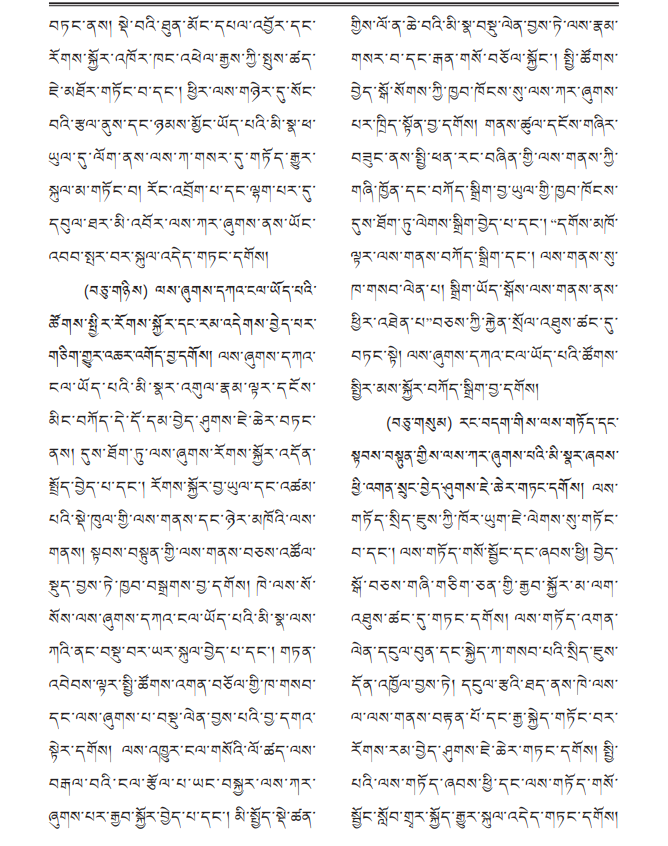 བཏང་ནས། སྡེ་བའི་ཐུན་མོང་དཔལ་འབྱོར་དང་
རོགས་སྐྱོར་འཁོར་ཁང་འཕེལ་རྒྱས་ཀྱི་སྤུས་ཚད་
ཇེ་མཐོར་གཏོང་བ་དང་། ཕྱིར་ལས་གཉེར་དུ་སོང་
བའི་རྩལ་ནུས་དང་ཉམས་མྱོང་ཡོད་པའི་མི་སྣ་ཕ་
ཡུལ་དུ་ལོག་ནས་ལས་ཀ་གསར་དུ་གཏོད་རྒྱུར་
སྐུལ་མ་གཏོང་བ། རོང་འབྲོག་པ་དང་ལྷག་པར་དུ་
དབུལ་ཐར་མི་འབོར་ལས་ཀར་ཞུགས་ནས་ཡོང་
འབབ་སྤར་བར་སྐུལ་འདེད་གཏང་དགོས།
(བཅུ་གཉིས) ལས་ཞུགས་དཀའ་ངལ་ཡོད་པའི་
ཚོགས་སྤྱིར་རོགས་སྐྱོར་དང་རམ་འདེགས་བྱེད་པར་
གཅིག་གྱུར་འཆར་འགོད་བྱ་དགོས། ལས་ཞུགས་དཀའ་
ངལ་ཡོད་པའི་མི་སྣར་འགུལ་རྣམ་ལྟར་དངོས་
མིང་བཀོད་དེ་དོ་དམ་བྱེད་ཤུགས་ཇེ་ཆེར་བཏང་
ནས། དུས་ཐོག་ཏུ་ལས་ཞུགས་རོགས་སྐྱོར་འདོན་
སྤྲོད་བྱེད་པ་དང་། རོགས་སྐྱོར་བྱ་ཡུལ་དང་འཚམ་
པའི་སྡེ་ཁུལ་གྱི་ལས་གནས་དང་ཉེར་མཁོའི་ལས་
གནས། སྟབས་བསྟུན་གྱི་ལས་གནས་བཅས་འཚོལ་
སྡུད་བྱས་ཏེ་ཁྱབ་བསྒྲགས་བྱ་དགོས། ཁེ་ལས་སོ་
སོས་ལས་ཞུགས་དཀའ་ངལ་ཡོད་པའི་མི་སྣ་ལས་
ཀའི་ནང་བསྡུ་བར་ཡར་སྐུལ་བྱེད་པ་དང་། གཏན་
འབེབས་ལྟར་སྤྱི་ཚོགས་འགན་བཅོལ་གྱི་ཁ་གསབ་
དང་ལས་ཞུགས་པ་བསྡུ་ལེན་བྱས་པའི་བྱ་དགའ་
སྟེར་དགོས། ལས་འཁྱུར་ངལ་གསོའི་ལོ་ཚད་ལས་
བརྒལ་བའི་ངལ་རྩོལ་པ་ཡང་བསྐྱར་ལས་ཀར་
ཞུགས་པར་རྒྱབ་སྐྱོར་བྱེད་པ་དང་། མི་སྤྱོད་སྡེ་ཚན་
གྱིས་ལོ་ན་ཆེ་བའི་མི་སྣ་བསྡུ་ལེན་བྱས་ཏེ་ལས་རྣམ་
གསར་བ་དང་རྒན་གསོ་བཅོལ་སྐྱོང་། སྤྱི་ཚོགས་
བྱེད་སྒོ་སོགས་ཀྱི་ཁྱབ་ཁོངས་སུ་ལས་ཀར་ཞུགས་
པར་ཁྲིད་སྟོན་བྱ་དགོས། གནས་ཚུལ་དངོས་གཞིར་
བཟུང་ནས་སྤྱི་ཕན་རང་བཞིན་གྱི་ལས་གནས་ཀྱི་
གཞི་ཁྱོན་དང་བཀོད་སྒྲིག་བྱ་ཡུལ་གྱི་ཁྱབ་ཁོངས་
དུས་ཐོག་ཏུ་ལེགས་སྒྲིག་བྱེད་པ་དང་། “དགོས་མཁོ་
ལྟར་ལས་གནས་བཀོད་སྒྲིག་དང་། ལས་གནས་སུ་
ཁ་གསབ་ལེན་པ། སྒྲིག་ཡོད་སྒོས་ལས་གནས་ནས་
ཕྱིར་འཐེན་པ”་བཅས་ཀྱི་རྐྱེན་སྲོལ་འཐུས་ཚང་དུ་
བཏང་སྟེ། ལས་ཞུགས་དཀའ་ངལ་ཡོད་པའི་ཚོགས་
སྤྱིར་མས་སྐྱོར་བཀོད་སྒྲིག་བྱ་དགོས།
(བཅུ་གསུམ) རང་བདག་གིས་ལས་གཏོད་དང་
སྟབས་བསྟུན་གྱིས་ལས་ཀར་ཞུགས་པའི་མི་སྣར་ཞབས་
ཕྱི་འགན་སྲུང་བྱེད་ཤུགས་ཇེ་ཆེར་གཏང་དགོས། ལས་
གཏོད་སྲིད་ཇུས་ཀྱི་ཁོར་ཡུག་ཇེ་ལེགས་སུ་གཏོང་
བ་དང་། ལས་གཏོད་གསོ་སྦྱོང་དང་ཞབས་ཕྱི། བྱེད་
སྒོ་བཅས་གཞི་གཅིག་ཅན་གྱི་རྒྱབ་སྐྱོར་མ་ལག་
འཐུས་ཚང་དུ་གཏང་དགོས། ལས་གཏོད་འགན་
ལེན་དངུལ་བུན་དང་སྐྱེད་ཀ་གསབ་པའི་སྲིད་ཇུས་
དོན་འཁྱོལ་བྱས་ཏེ། དངུལ་རྩའི་ཐད་ནས་ཁེ་ལས་
ལ་ལས་གནས་བརྟན་པོ་དང་རྒྱ་སྐྱེད་གཏོང་བར་
རོགས་རམ་བྱེད་ཤུགས་ཇེ་ཆེར་གཏང་དགོས། སྤྱི་
པའི་ལས་གཏོད་ཞབས་ཕྱི་དང་ལས་གཏོད་གསོ་
སྦྱོང་སློབ་གྲྭར་སྐྱོད་རྒྱུར་སྐུལ་འདེད་གཏང་དགོས།